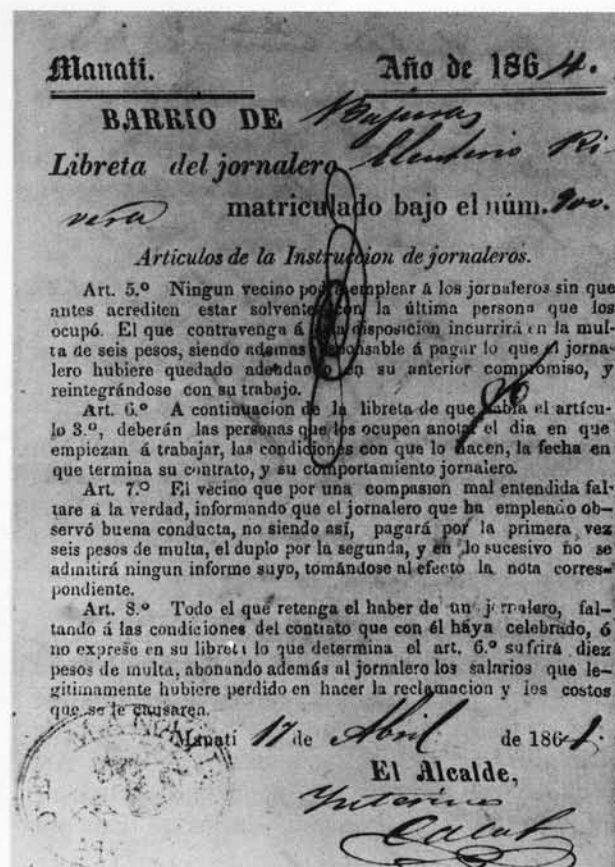 Manati. Año de 1864.
BARRIO DE Bajuras
Libreta del jornalero Eleuterio Ri-
vera matriculado bajo el núm. 900.
Artículos de la Instruccion de jornaleros.
Art. 5.º Ningun vecino podrá emplear á los jornaleros sin que
antes acrediten estar solventes con la última persona que los
ocupó. El que contravenga á esta disposicion incurrirá en la mul-
ta de seis pesos, siendo ademas responsable á pagar lo que el jorna-
lero hubiere quedado adeudando en su anterior compromiso, y
reintegrándose con su trabajo.
Art. 6.º A continuacion de la libreta de que habla el artícu-
lo 3.º, deberán las personas que los ocupen anotar el dia en que
empiezan á trabajar, las condiciones con que lo hacen, la fecha en
que termina su contrato, y su comportamiento jornalero.
Art. 7.º El vecino que por una compasion mal entendida fal-
tare á la verdad, informando que el jornalero que ha empleado ob-
servó buena conducta, no siendo así, pagará por la primera vez
seis pesos de multa, el duplo por la segunda, y en lo sucesivo no se
admitirá ningun informe suyo, tomándose al efecto la nota corres-
pondiente.
Art. 8.º Todo el que retenga el haber de un jornalero, fal-
tando á las condiciones del contrato que con él haya celebrado, ó
no exprese en su libreta lo que determina el art. 6.º sufrirá diez
pesos de multa, abonando además al jornalero los salarios que le-
gitimamente hubiere perdido en hacer la reclamacion y los costos
que se le causaren.
Manati 17 de Abril de 1864.
El Alcalde,
Interino